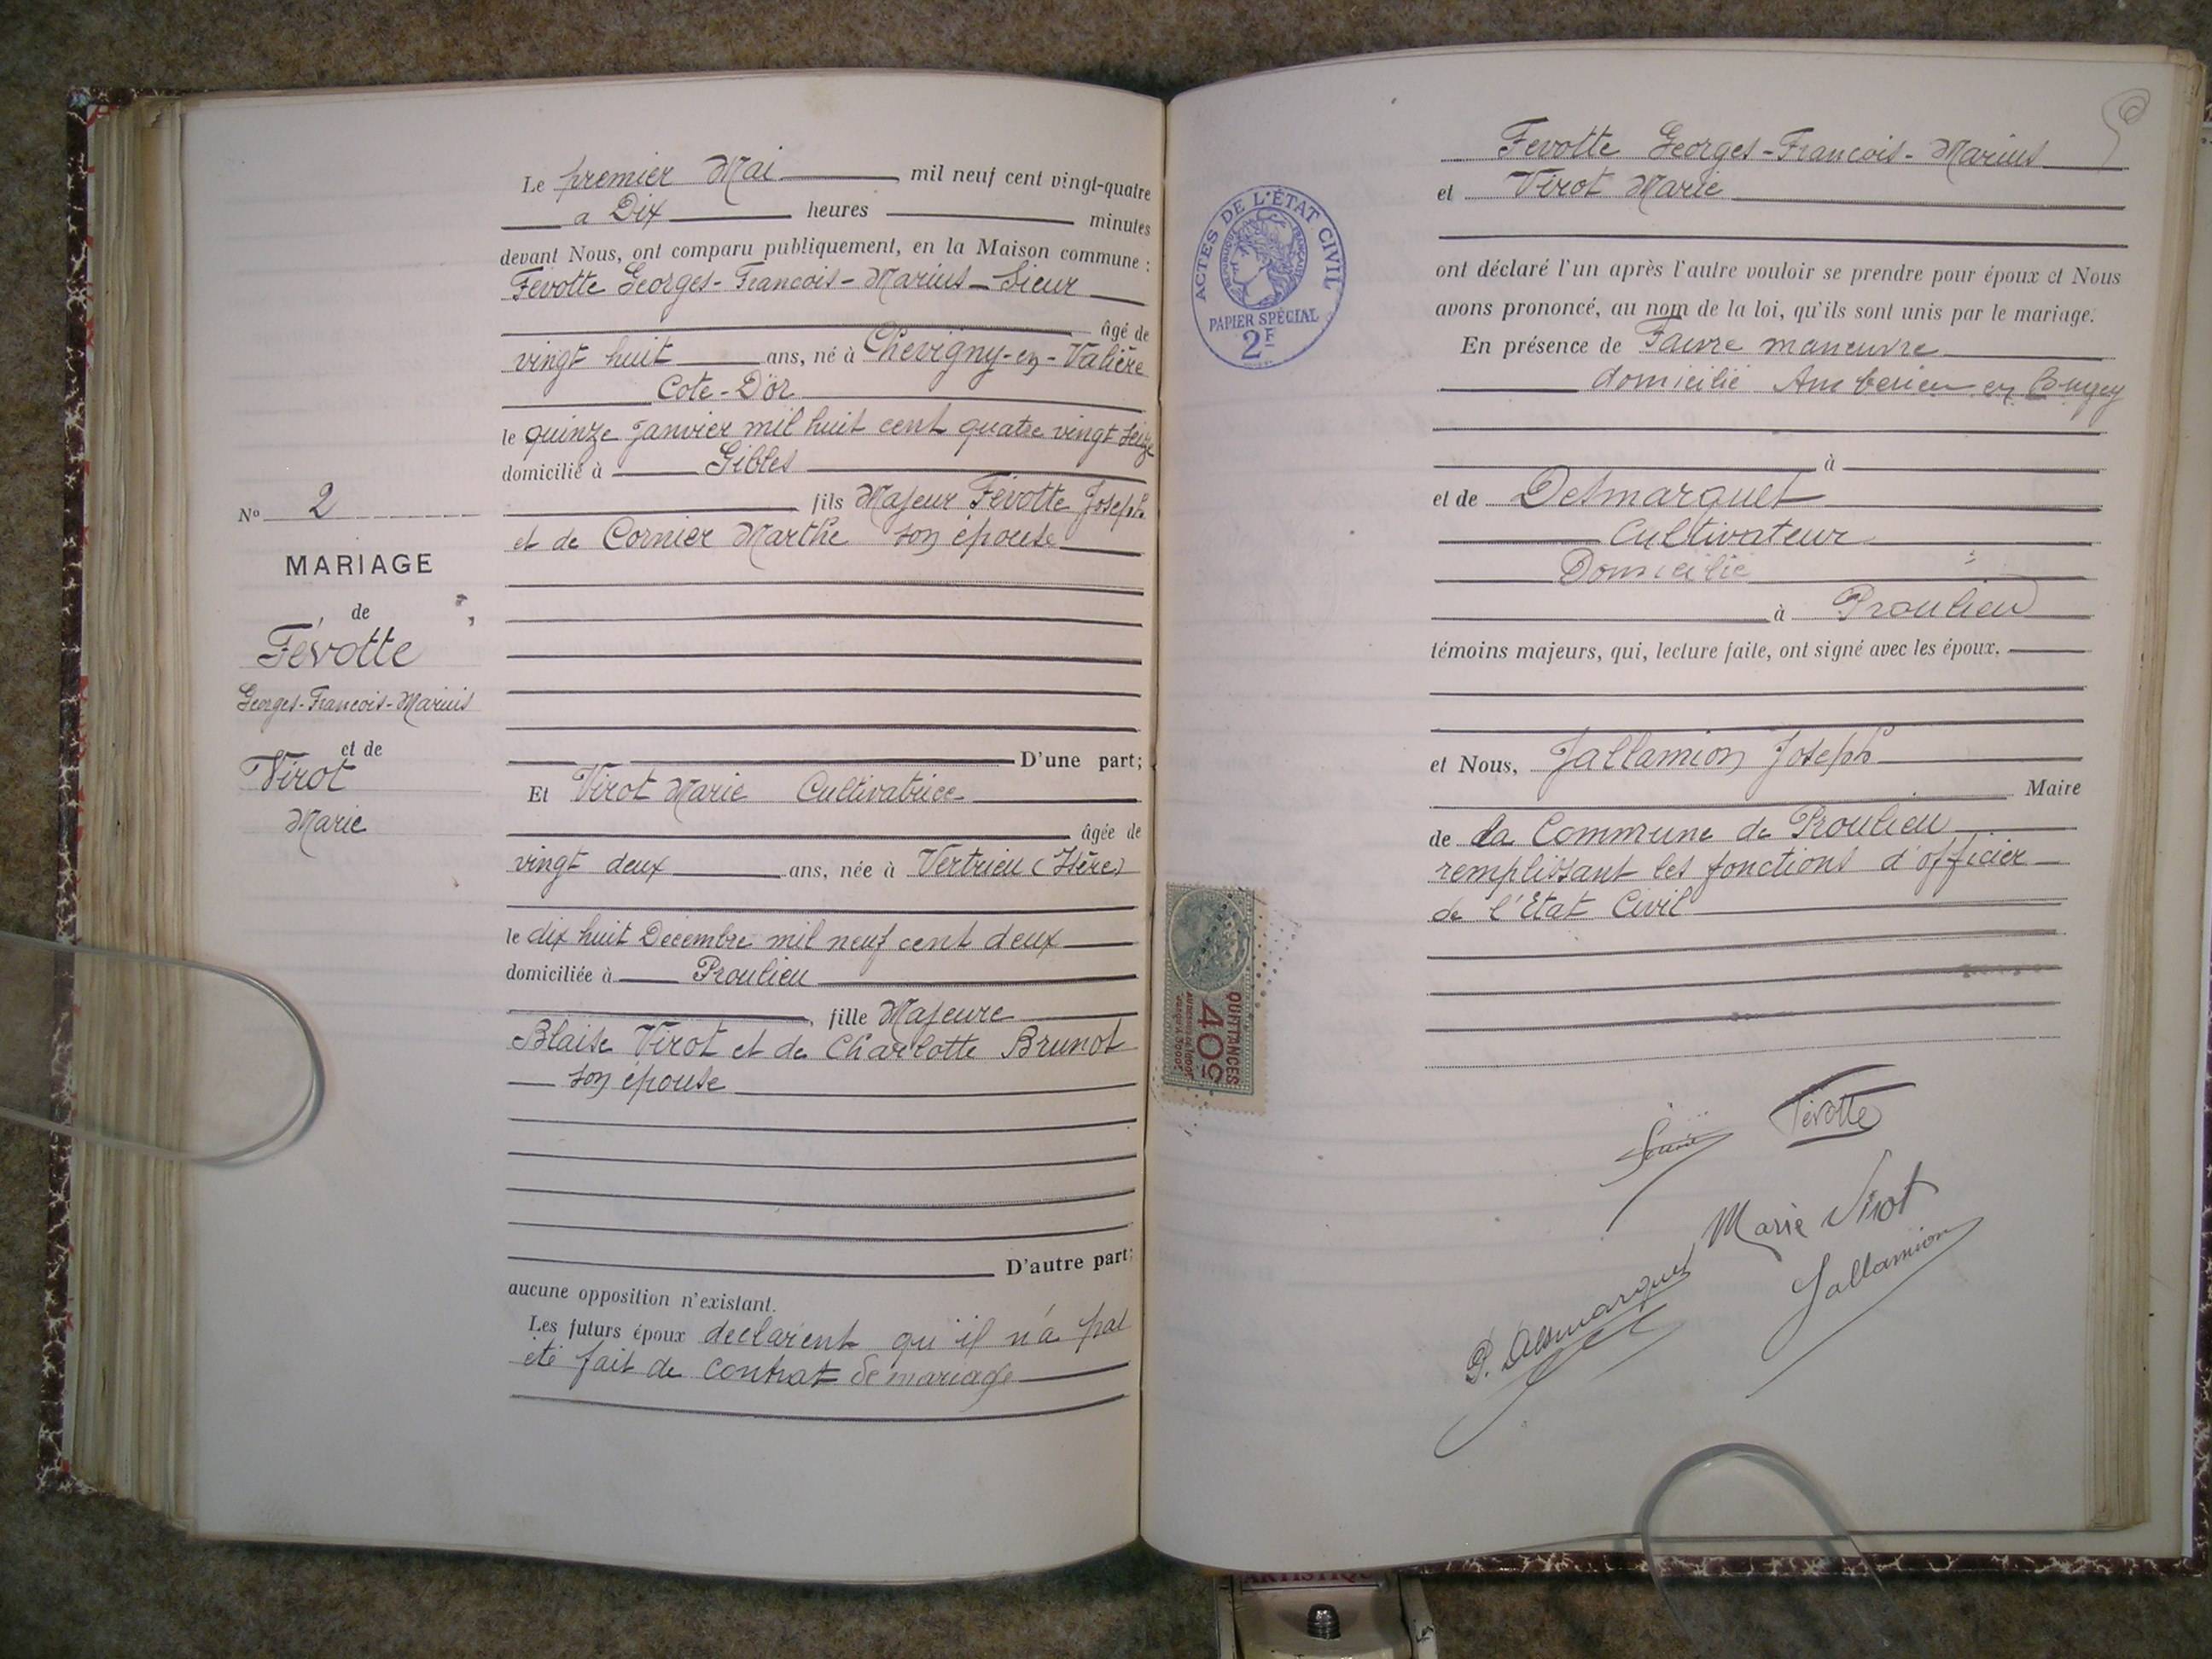 Le premier Mai mil neuf cent vingt-quatre
a Dix heures minutes
devant Nous, ont comparu publiquement, en la Maison commune :
Févotte Georges-Francois-Marius-Sieur
âgé de
vingt huit ans, né à Chevigny-en-Valière
Cote-D'or
le quinze Janvier mil huit cent quatre vingt seize
domicilié à Gibles
fils Majeur Févotte Joseph
et de Cornier Marthe son épouse
D'une part;
Et Virot Marie Cultivatrice
âgée de
vingt deux ans, née à Vertrieu (Isère)
le dix huit Decembre mil neuf cent deux
domiciliée à Proulieu
, fille Majeure
Blaise Virot et de Charlotte Brunot
son épouse
D'autre part;
aucune opposition n'existant.
Les futurs époux declarent qu'il n'a pas
été fait de contrat de mariage
N° 2
MARIAGE
de
Févotte
Georges-Francois-Marius
et de
Virot
Marie
Fevotte Georges-Francois-Marius
et Virot Marie
ont déclaré l'un après l'autre vouloir se prendre pour époux et Nous
avons prononcé, au nom de la loi, qu'ils sont unis par le mariage.
En présence de Faivre maneuvre
domicilié Amberieu en Bugey
à
et de Desmarquet
Cultivateur
Domicilié
à Proulieu
témoins majeurs, qui, lecture faite, ont signé avec les époux.
et Nous, Jallamion Joseph
Maire
de la Commune de Proulieu
remplissant les fonctions d'officier
de l'Etat Civil
Févotte
Marie Virot
P. Desmarquet
Jallamion
ACTES DE L'ÉTAT CIVIL
RÉPUBLIQUE FRANÇAISE
PAPIER SPÉCIAL
2F
QUITTANCES
40c
ARTISTIQUE